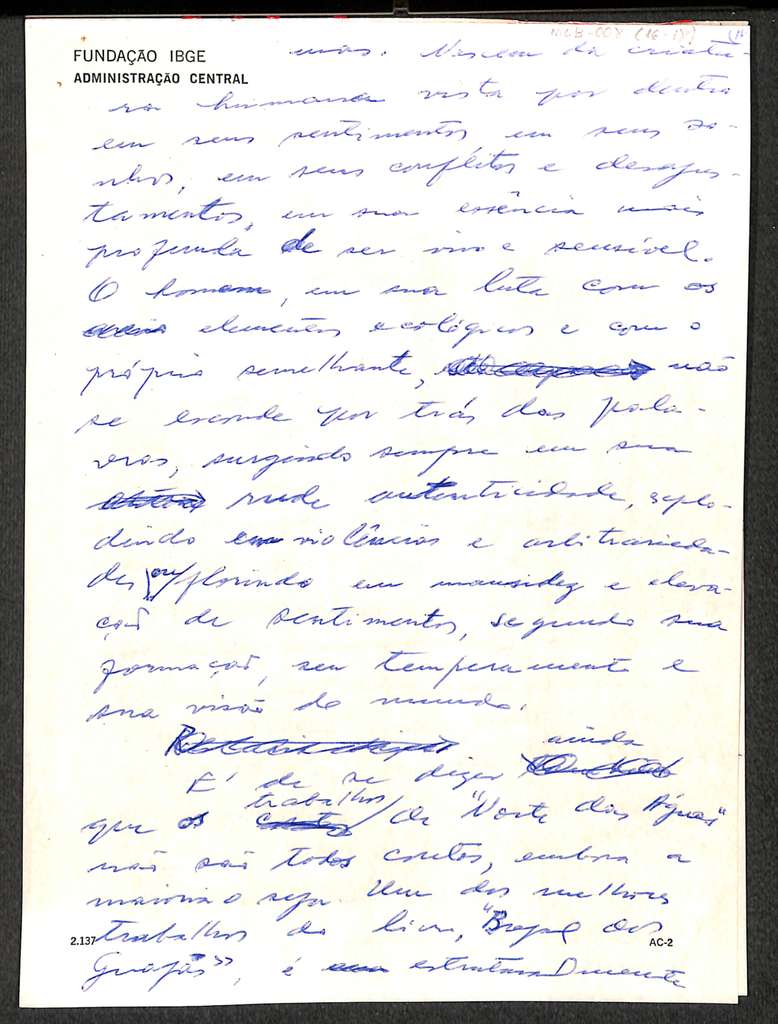 MLB-008 (16-18)
FUNDAÇÃO IBGE
ADMINISTRAÇÃO CENTRAL
mas. Nascem da criatu-
ra humana vista por dentro
em seus sentimentos, em seus so-
nhos, em seus conflitos e desajus-
tamentos, em sua essência mais
profunda de ser vivo e sensível.
O homem, em sua luta com os
elementos ecológicos e com o
próprio semelhante, não
se esconde por trás das pala-
vras, surgindo sempre em sua
rude autenticidade, explo-
dindo em violências e arbitrarieda-
des ou florindo em mansidez e eleva-
ção de sentimentos, segundo sua
formação, seu temperamento e
sua visão do mundo.
É de se dizer ainda
que os trabalhos de "Norte das Águas"
não são todos contos, embora a
maioria o seja. Um dos melhores
trabalhos do livro, "Brejal dos
Guajás", é estruturalmente
2.137
AC-2